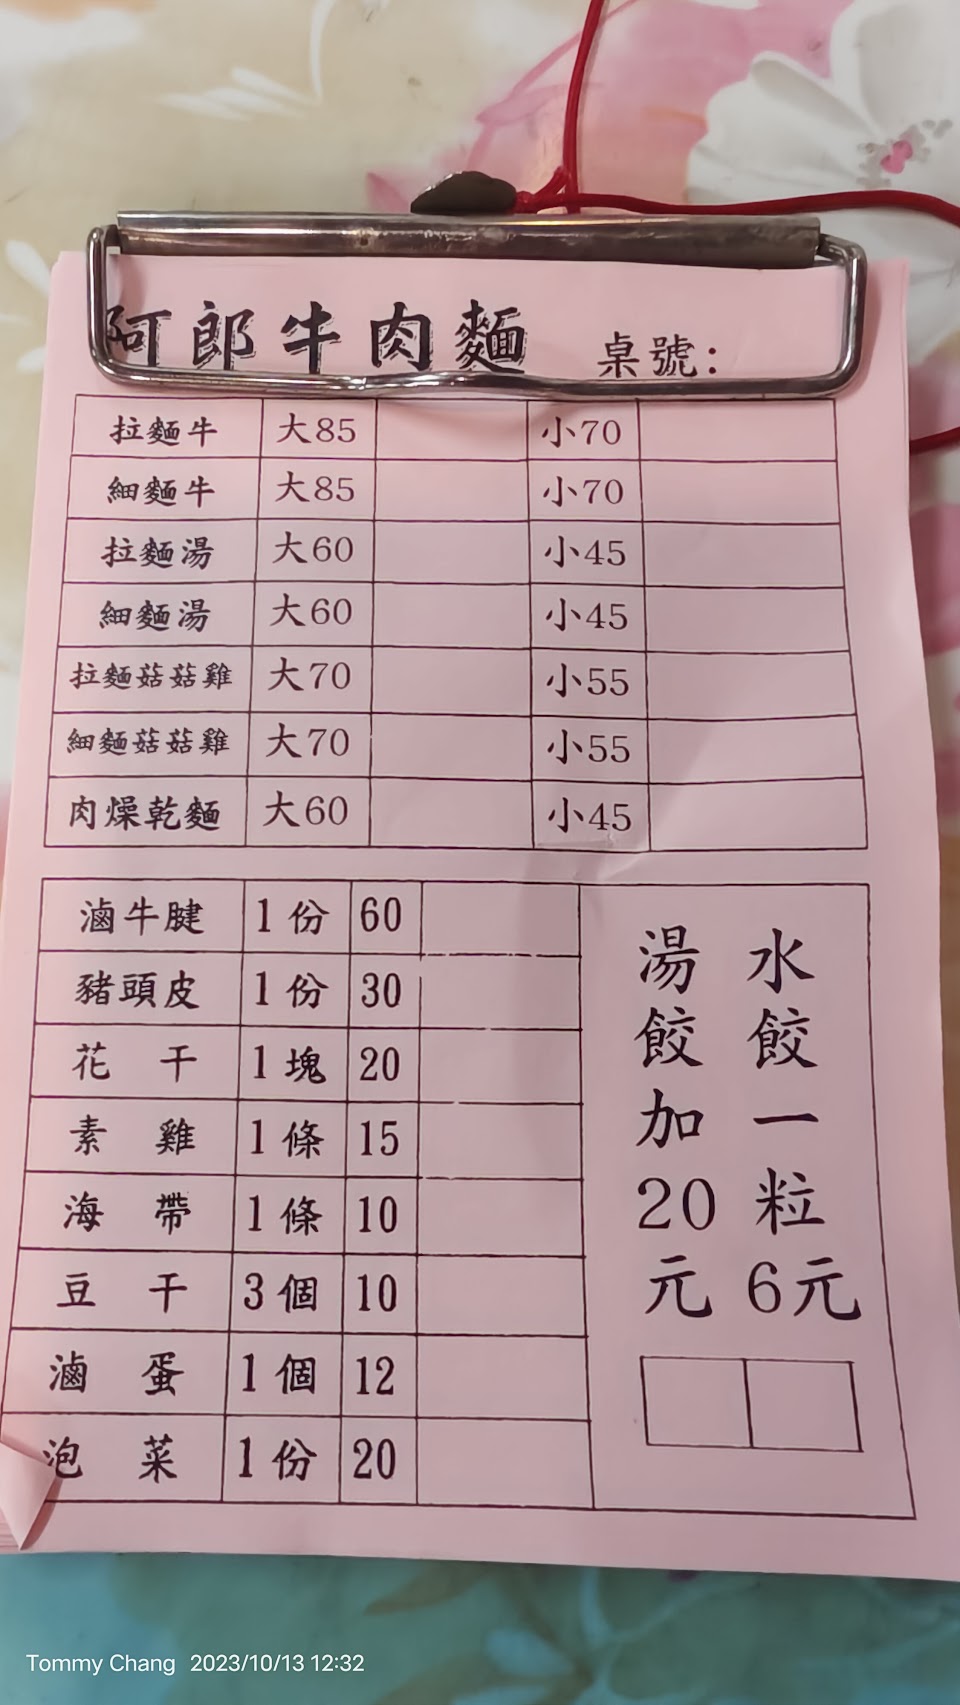 阿郎牛肉麵 桌號：
拉麵牛 大85 小70
細麵牛 大85 小70
拉麵湯 大60 小45
細麵湯 大60 小45
拉麵菇菇雞 大70 小55
細麵菇菇雞 大70 小55
肉燥乾麵 大60 小45
滷牛腱 1份 60
豬頭皮 1份 30
花干 1塊 20
素雞 1條 15
海帶 1條 10
豆干 3個 10
滷蛋 1個 12
泡菜 1份 20
水餃一粒6元
湯餃加20元
Tommy Chang 2023/10/13 12:32